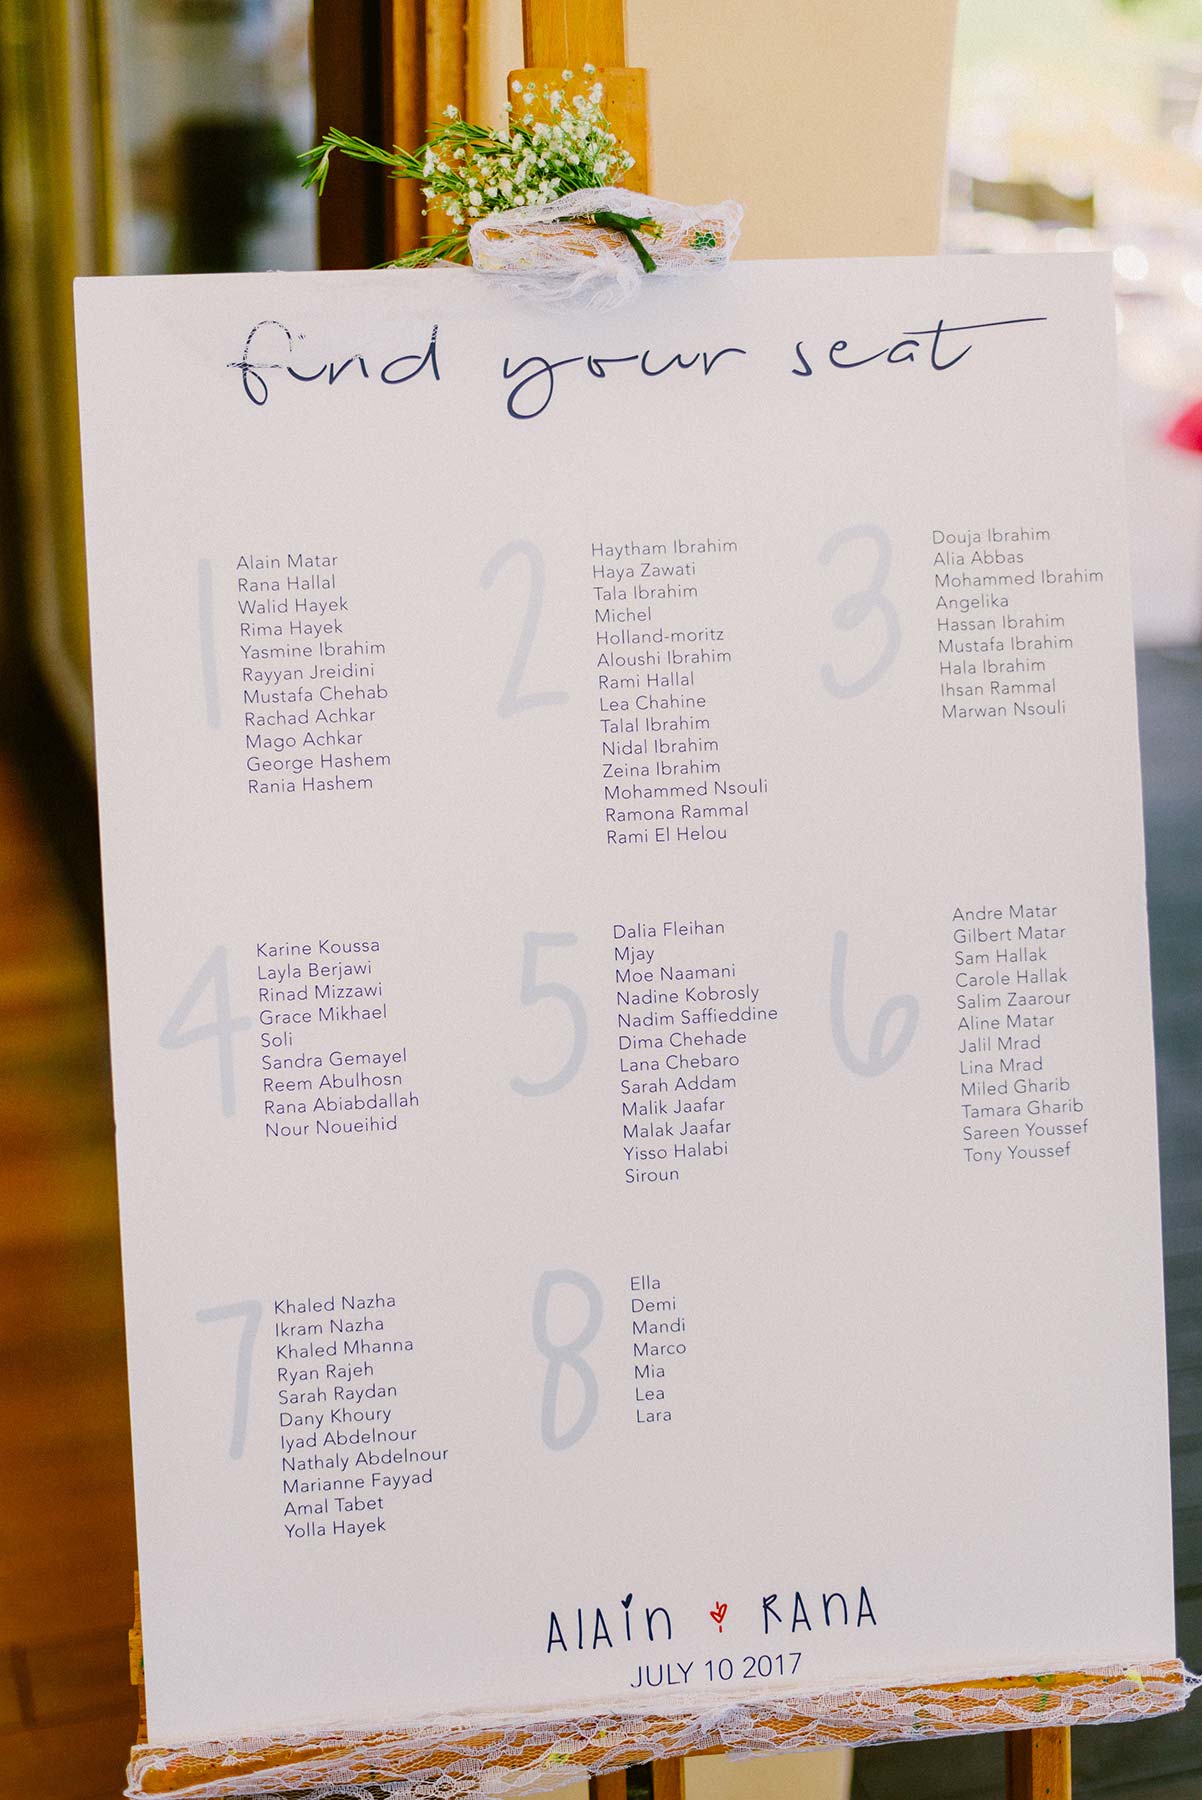 find your seat
1
Alain Matar
Rana Hallal
Walid Hayek
Rima Hayek
Yasmine Ibrahim
Rayyan Jreidini
Mustafa Chehab
Rachad Achkar
Mago Achkar
George Hashem
Rania Hashem
2
Haytham Ibrahim
Haya Zawati
Tala Ibrahim
Michel
Holland-moritz
Aloushi Ibrahim
Rami Hallal
Lea Chahine
Talal Ibrahim
Nidal Ibrahim
Zeina Ibrahim
Mohammed Nsouli
Ramona Rammal
Rami El Helou
3
Douja Ibrahim
Alia Abbas
Mohammed Ibrahim
Angelika
Hassan Ibrahim
Mustafa Ibrahim
Hala Ibrahim
Ihsan Rammal
Marwan Nsouli
4
Karine Koussa
Layla Berjawi
Rinad Mizzawi
Grace Mikhael
Soli
Sandra Gemayel
Reem Abulhosn
Rana Abiabdallah
Nour Noueihid
5
Dalia Fleihan
Mjay
Moe Naamani
Nadine Kobrosly
Nadim Saffieddine
Dima Chehade
Lana Chebaro
Sarah Addam
Malik Jaafar
Malak Jaafar
Yisso Halabi
Siroun
6
Andre Matar
Gilbert Matar
Sam Hallak
Carole Hallak
Salim Zaarour
Aline Matar
Jalil Mrad
Lina Mrad
Miled Gharib
Tamara Gharib
Sareen Youssef
Tony Youssef
7
Khaled Nazha
Ikram Nazha
Khaled Mhanna
Ryan Rajeh
Sarah Raydan
Dany Khoury
Iyad Abdelnour
Nathaly Abdelnour
Marianne Fayyad
Amal Tabet
Yolla Hayek
8
Ella
Demi
Mandi
Marco
Mia
Lea
Lara
ALAIN RANA
JULY 10 2017